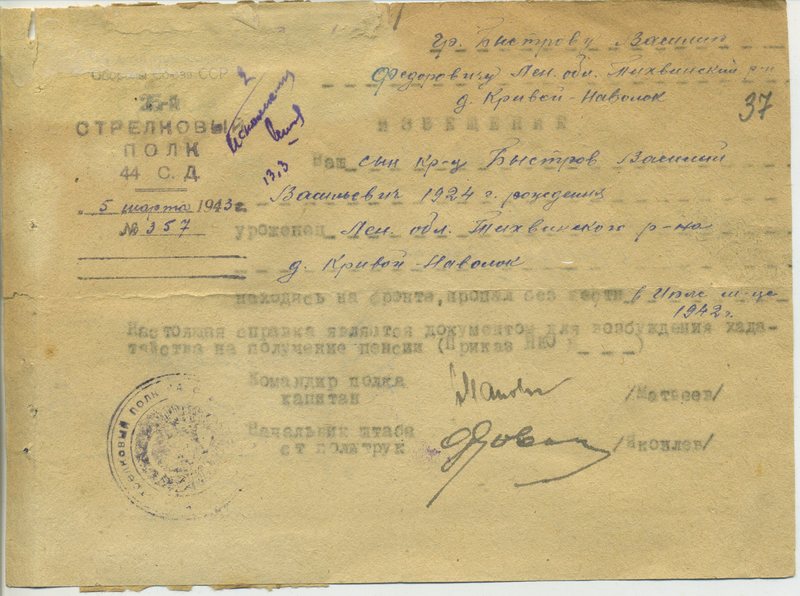 гр. Быстрову Василию
Федоровичу Лен. обл. Тихвинский р-н
д. Кривой-Наволок
37
Обороны Союза ССР
СТРЕЛКОВЫЙ
ПОЛК
44 С.Д.
5 марта 1943 г.
№ 357
2
13.3
ИЗВЕЩЕНИЕ
Ваш сын кр-ц Быстров Василий
Васильевич 1924 г. рождения
уроженец Лен. обл. Тихвинского р-на
д. Кривой Наволок
находясь на фронте, пропал без вести в м-це
1942 г.
Настоящая справка является документом для возбуждения хада-
тайства на получение пенсии (Приказ НКО № )
Командир полка
капитан /Матвеев/
Начальник штаба
ст политрук /Яковлев/